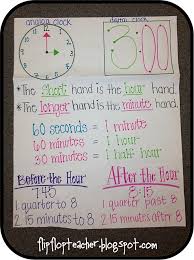 analog clock digital clock
3:00
*The short hand is the hour hand.
*The longer hand is the minute hand.
60 seconds = 1 minute
60 minutes = 1 hour
30 minutes = 1 half hour
Before the Hour After the Hour
7:45 8:15
1. quarter to 8 1. quarter past 8
2. 15 minutes to 8 2. 15 minutes after 8
flipflopteacher.blogspot.com